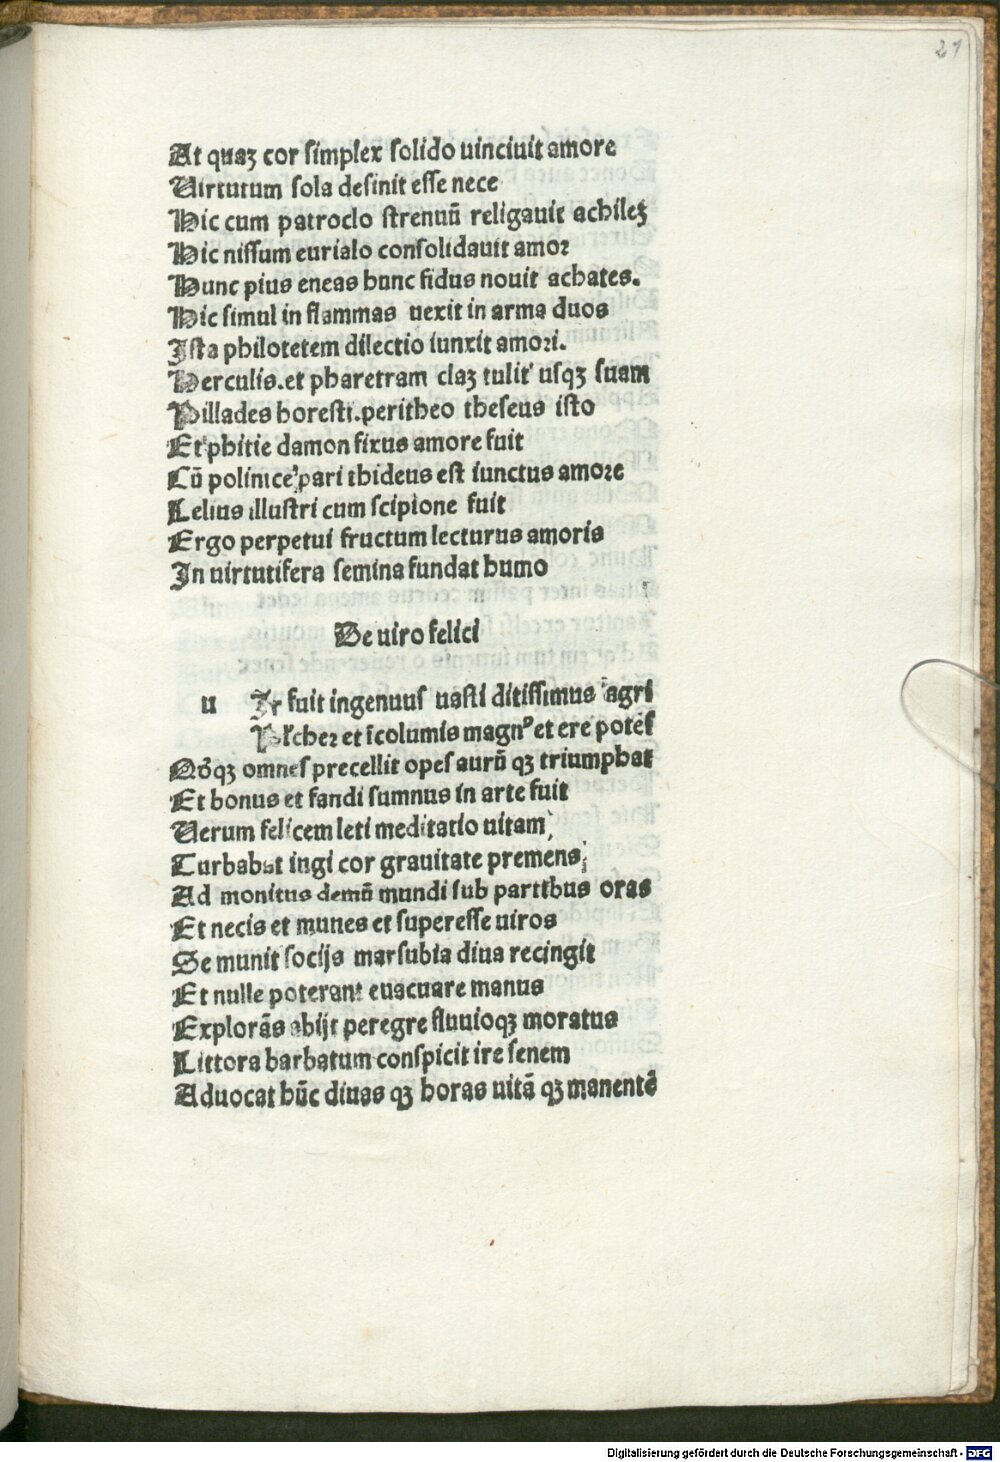 21
At quaꝫ cor simplex solido uinciuit amore
Uirtutum sola desinit esse nece
Hic cum patroclo strenuū religauit achileꝫ
Hic nissum eurialo consolidauit amor
Hunc pius eneas hunc fidus nouit achates.
Hic simul in flammas uexit in arma duos
Ista philotetem dilectio iunxit amori.
Herculis. et pharetram claꝫ tulit usqꝫ suam
Pillades horesti. peritheo theseus isto
Et phitie damon fixus amore fuit
Cū polinice pari thideus est iunctus amore
Lelius illustri cum scipione fuit
Ergo perpetui fructum lecturus amoris
In uirtutifera semina fundat humo
De uiro felici
u Ir fuit ingenuus uasti ditissimus agri
Plcher et īcolumis magnꝰ et ere potēs
qꝫ omnes precellit opes aurū qꝫ triumphat
Et bonus et fandi sumnus in arte fuit
Uerum felicem leti meditatio uitam
Turbabat ingi cor grauitate premens
Ad monitus demū mundi sub partibus oras
Et necis et munes et superesse uiros
Se munit socijs marsubia diua recingit
Et nulle poterant euacuare manus
Explorās abijt peregre fluuioqꝫ moratus
Littora barbatum conspicit ire senem
Aduocat hūc diuas qꝫ horas uitā qꝫ manentē
Digitalisierung gefördert durch die Deutsche Forschungsgemeinschaft - DFG